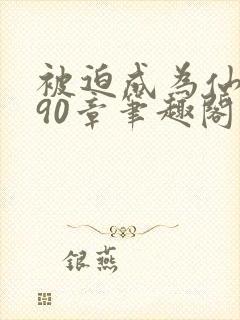 被迫成为仙
90章笔趣阁
银燕